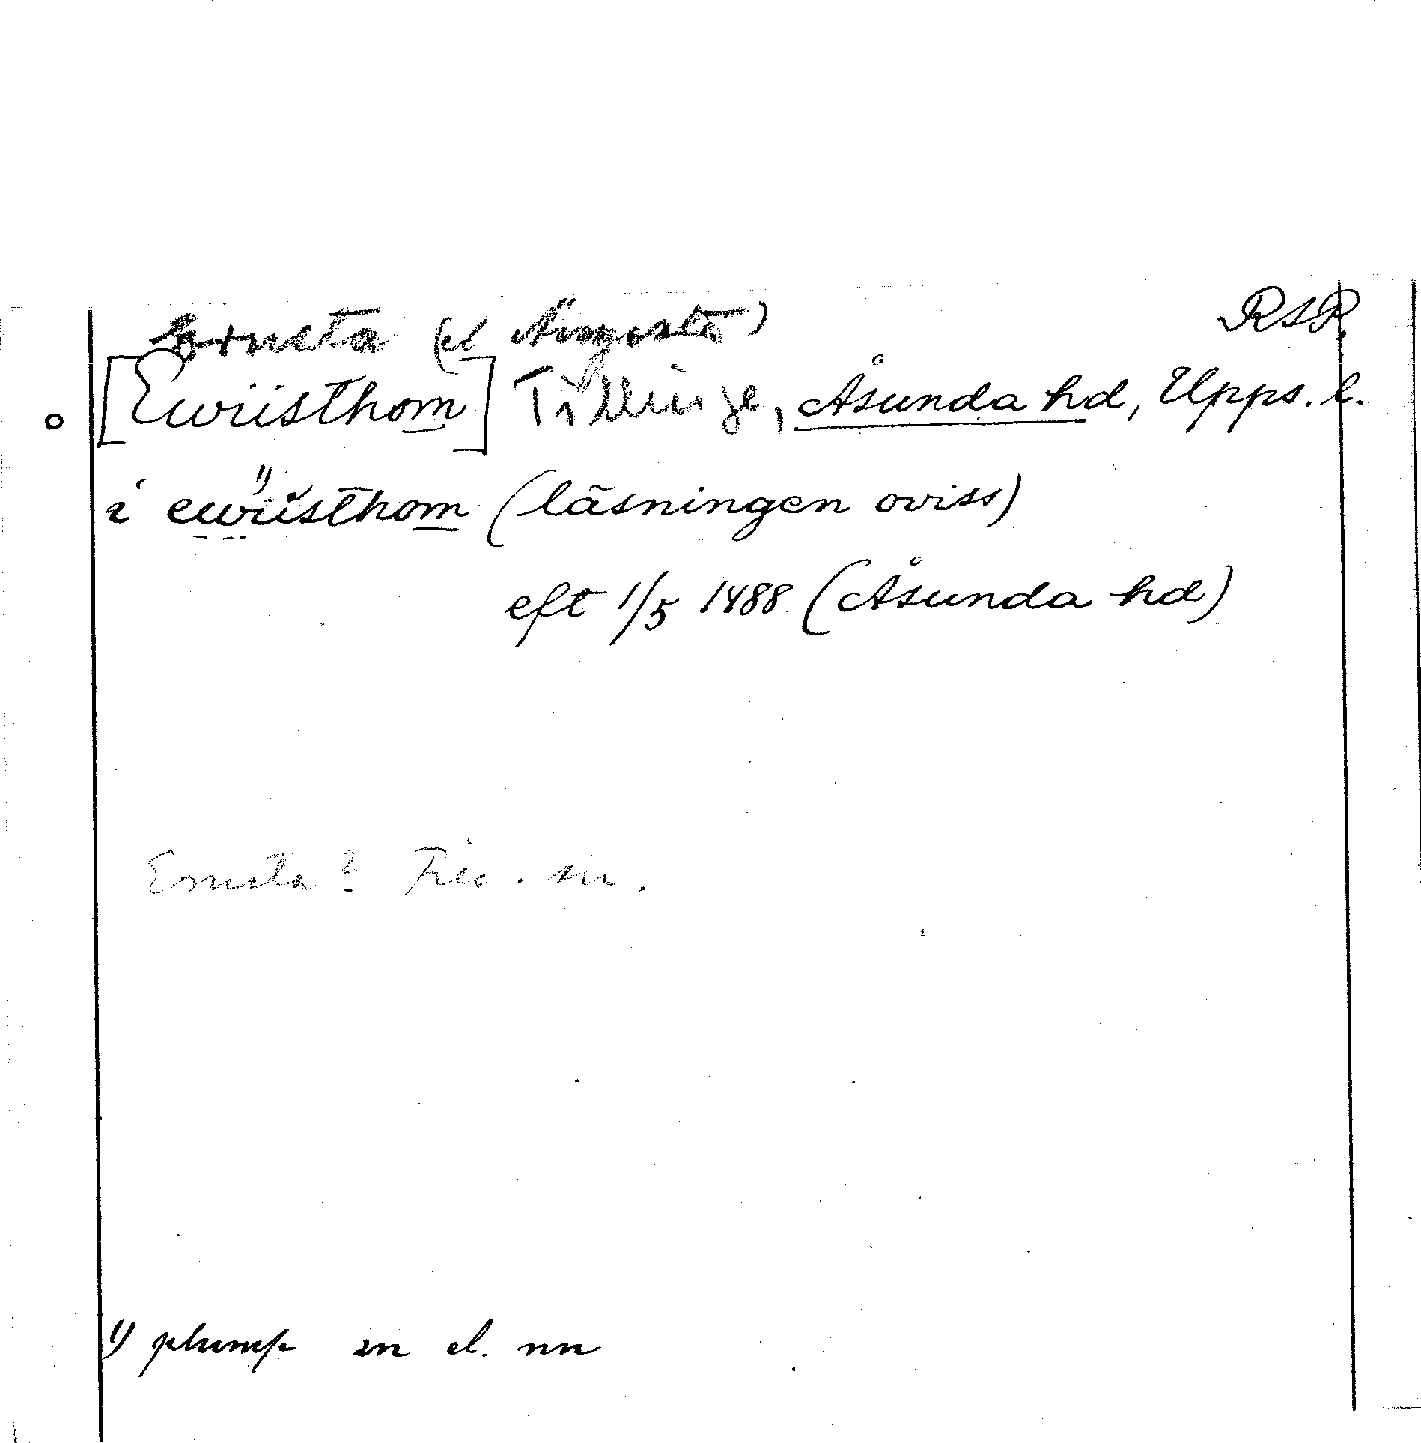 Ernsta (el RSR.
[Ewiisthom] Tillinge, Åsunda hd, Upps. l.
i ewiisthom (läsningen oviss)
eft 1/5 1488 (Åsunda hd)
Ernsta? sn.
1) plump m el. nn